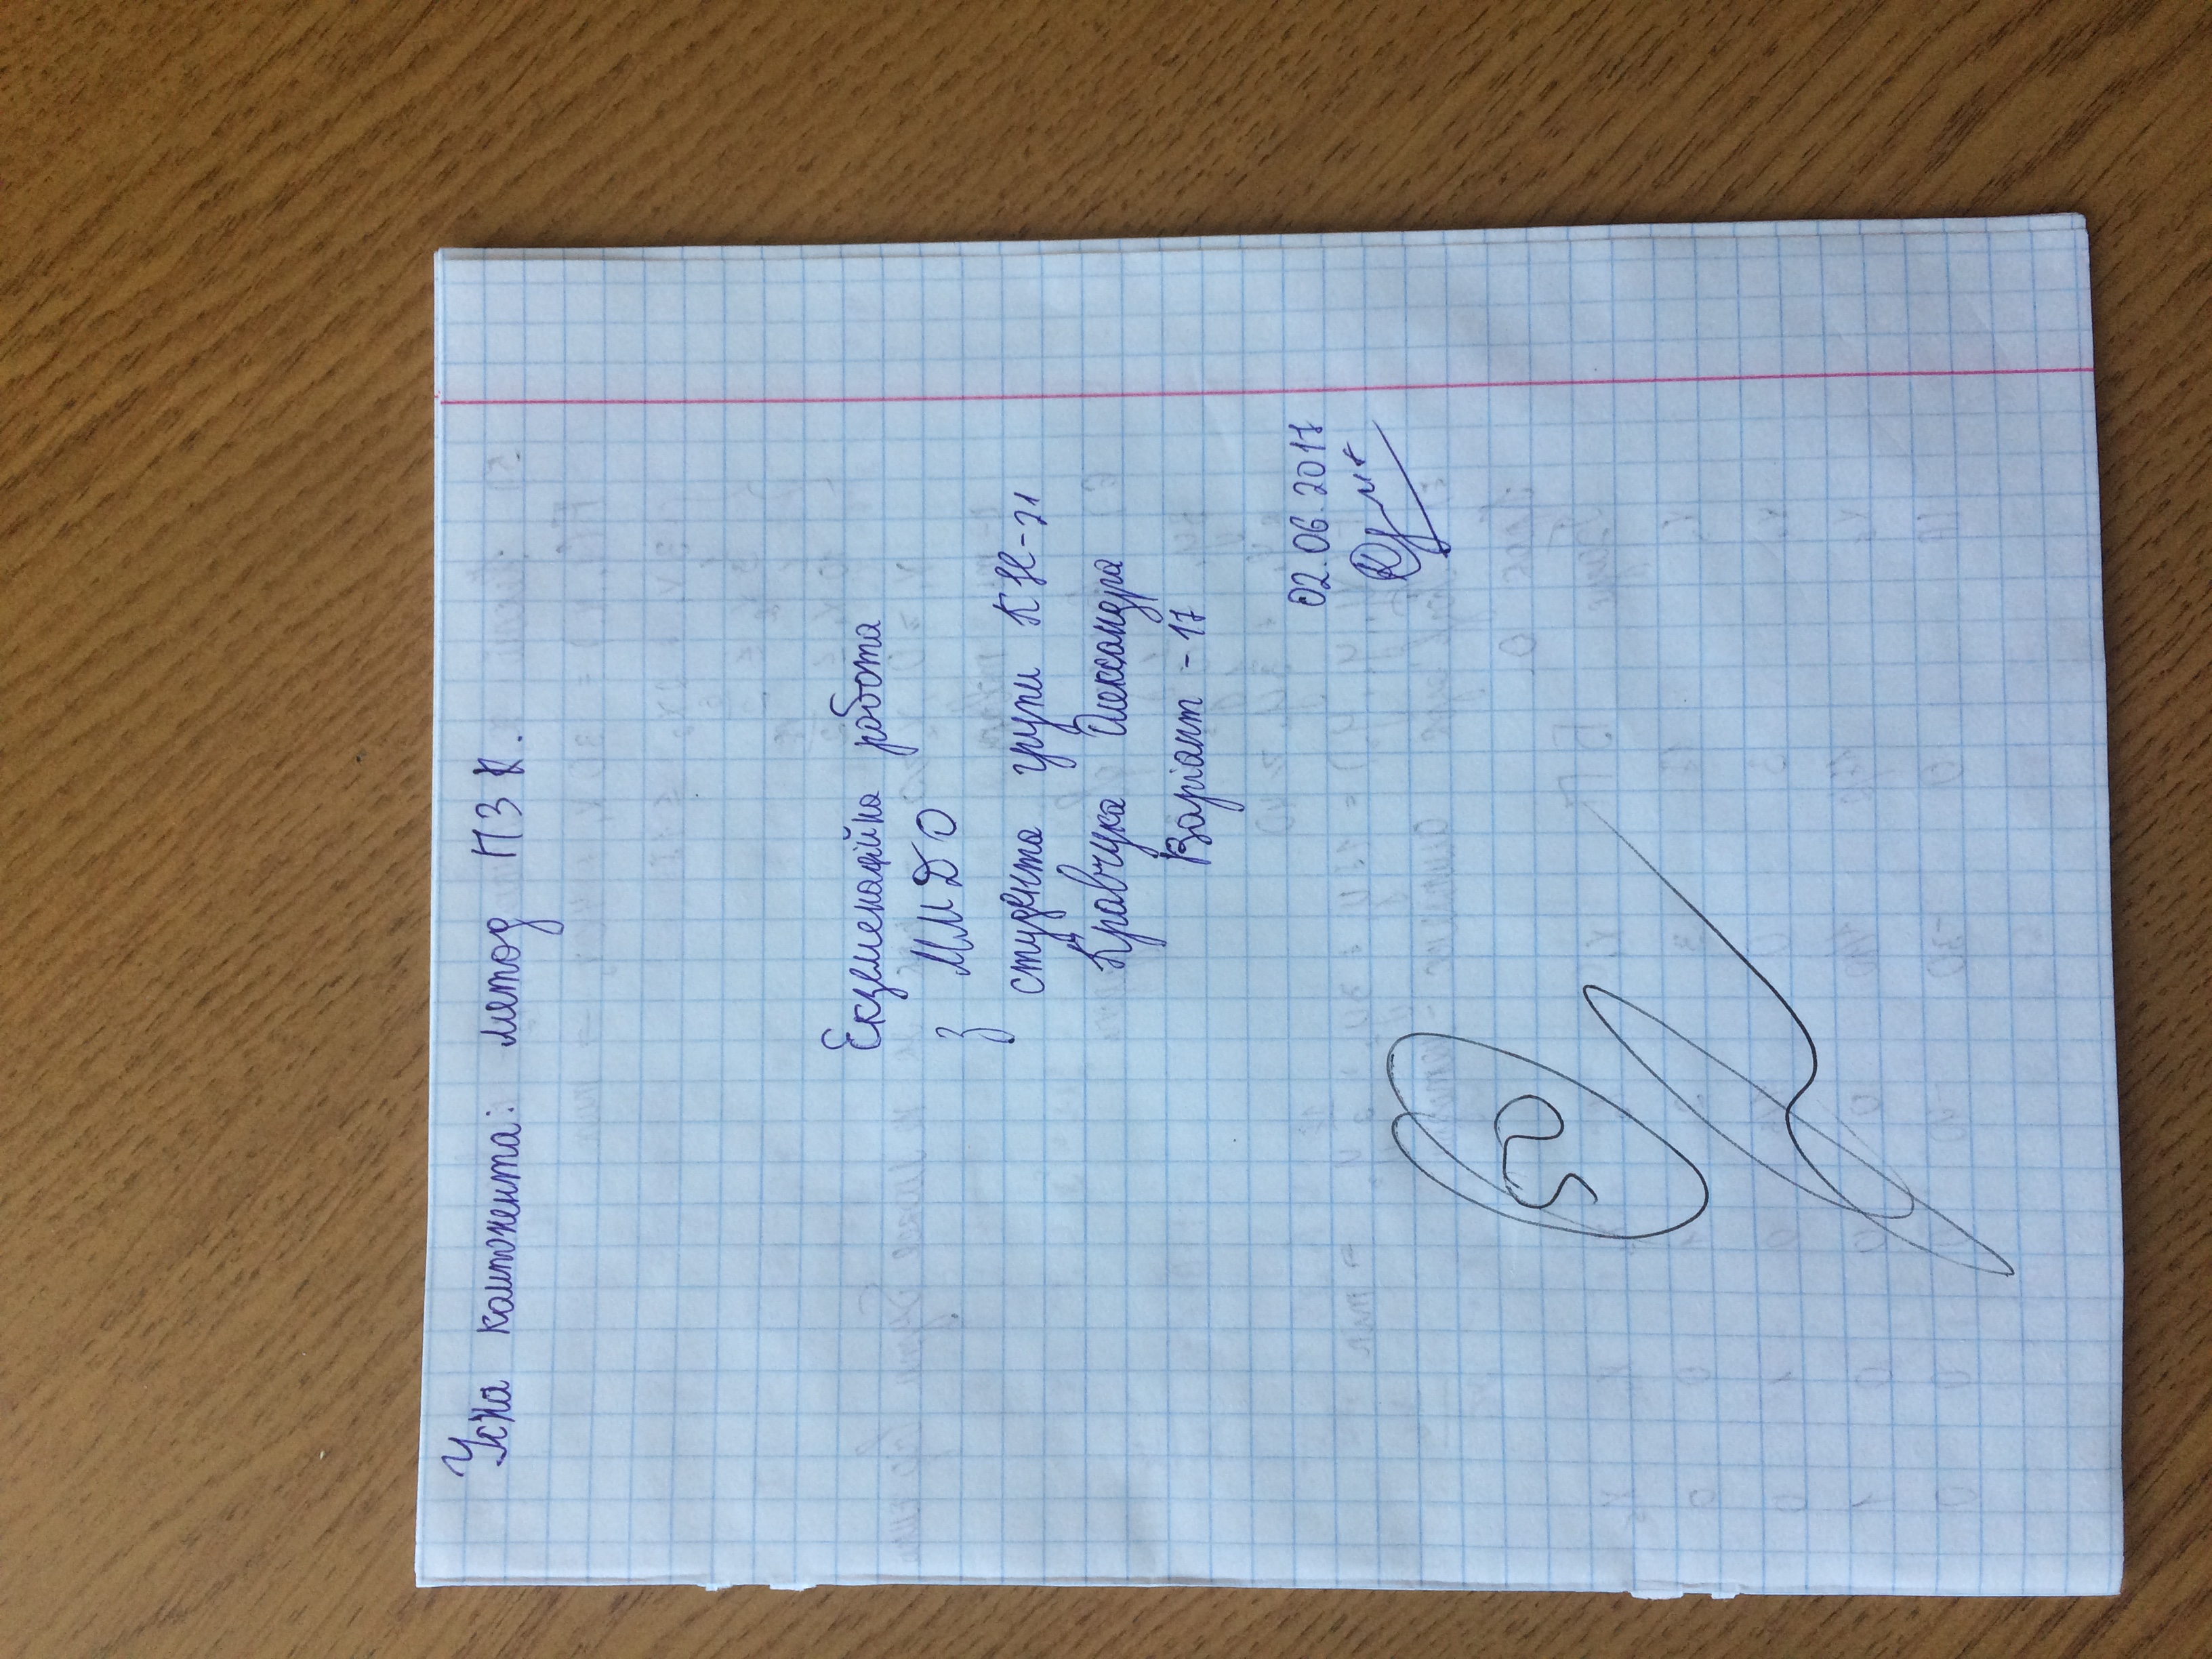 Усна компонента: метод ПЗК.
Екземенаційна робота
з ММДО
студента групи КН-21
Кравчука Олександра
Варіант - 17
02.06.2017
50